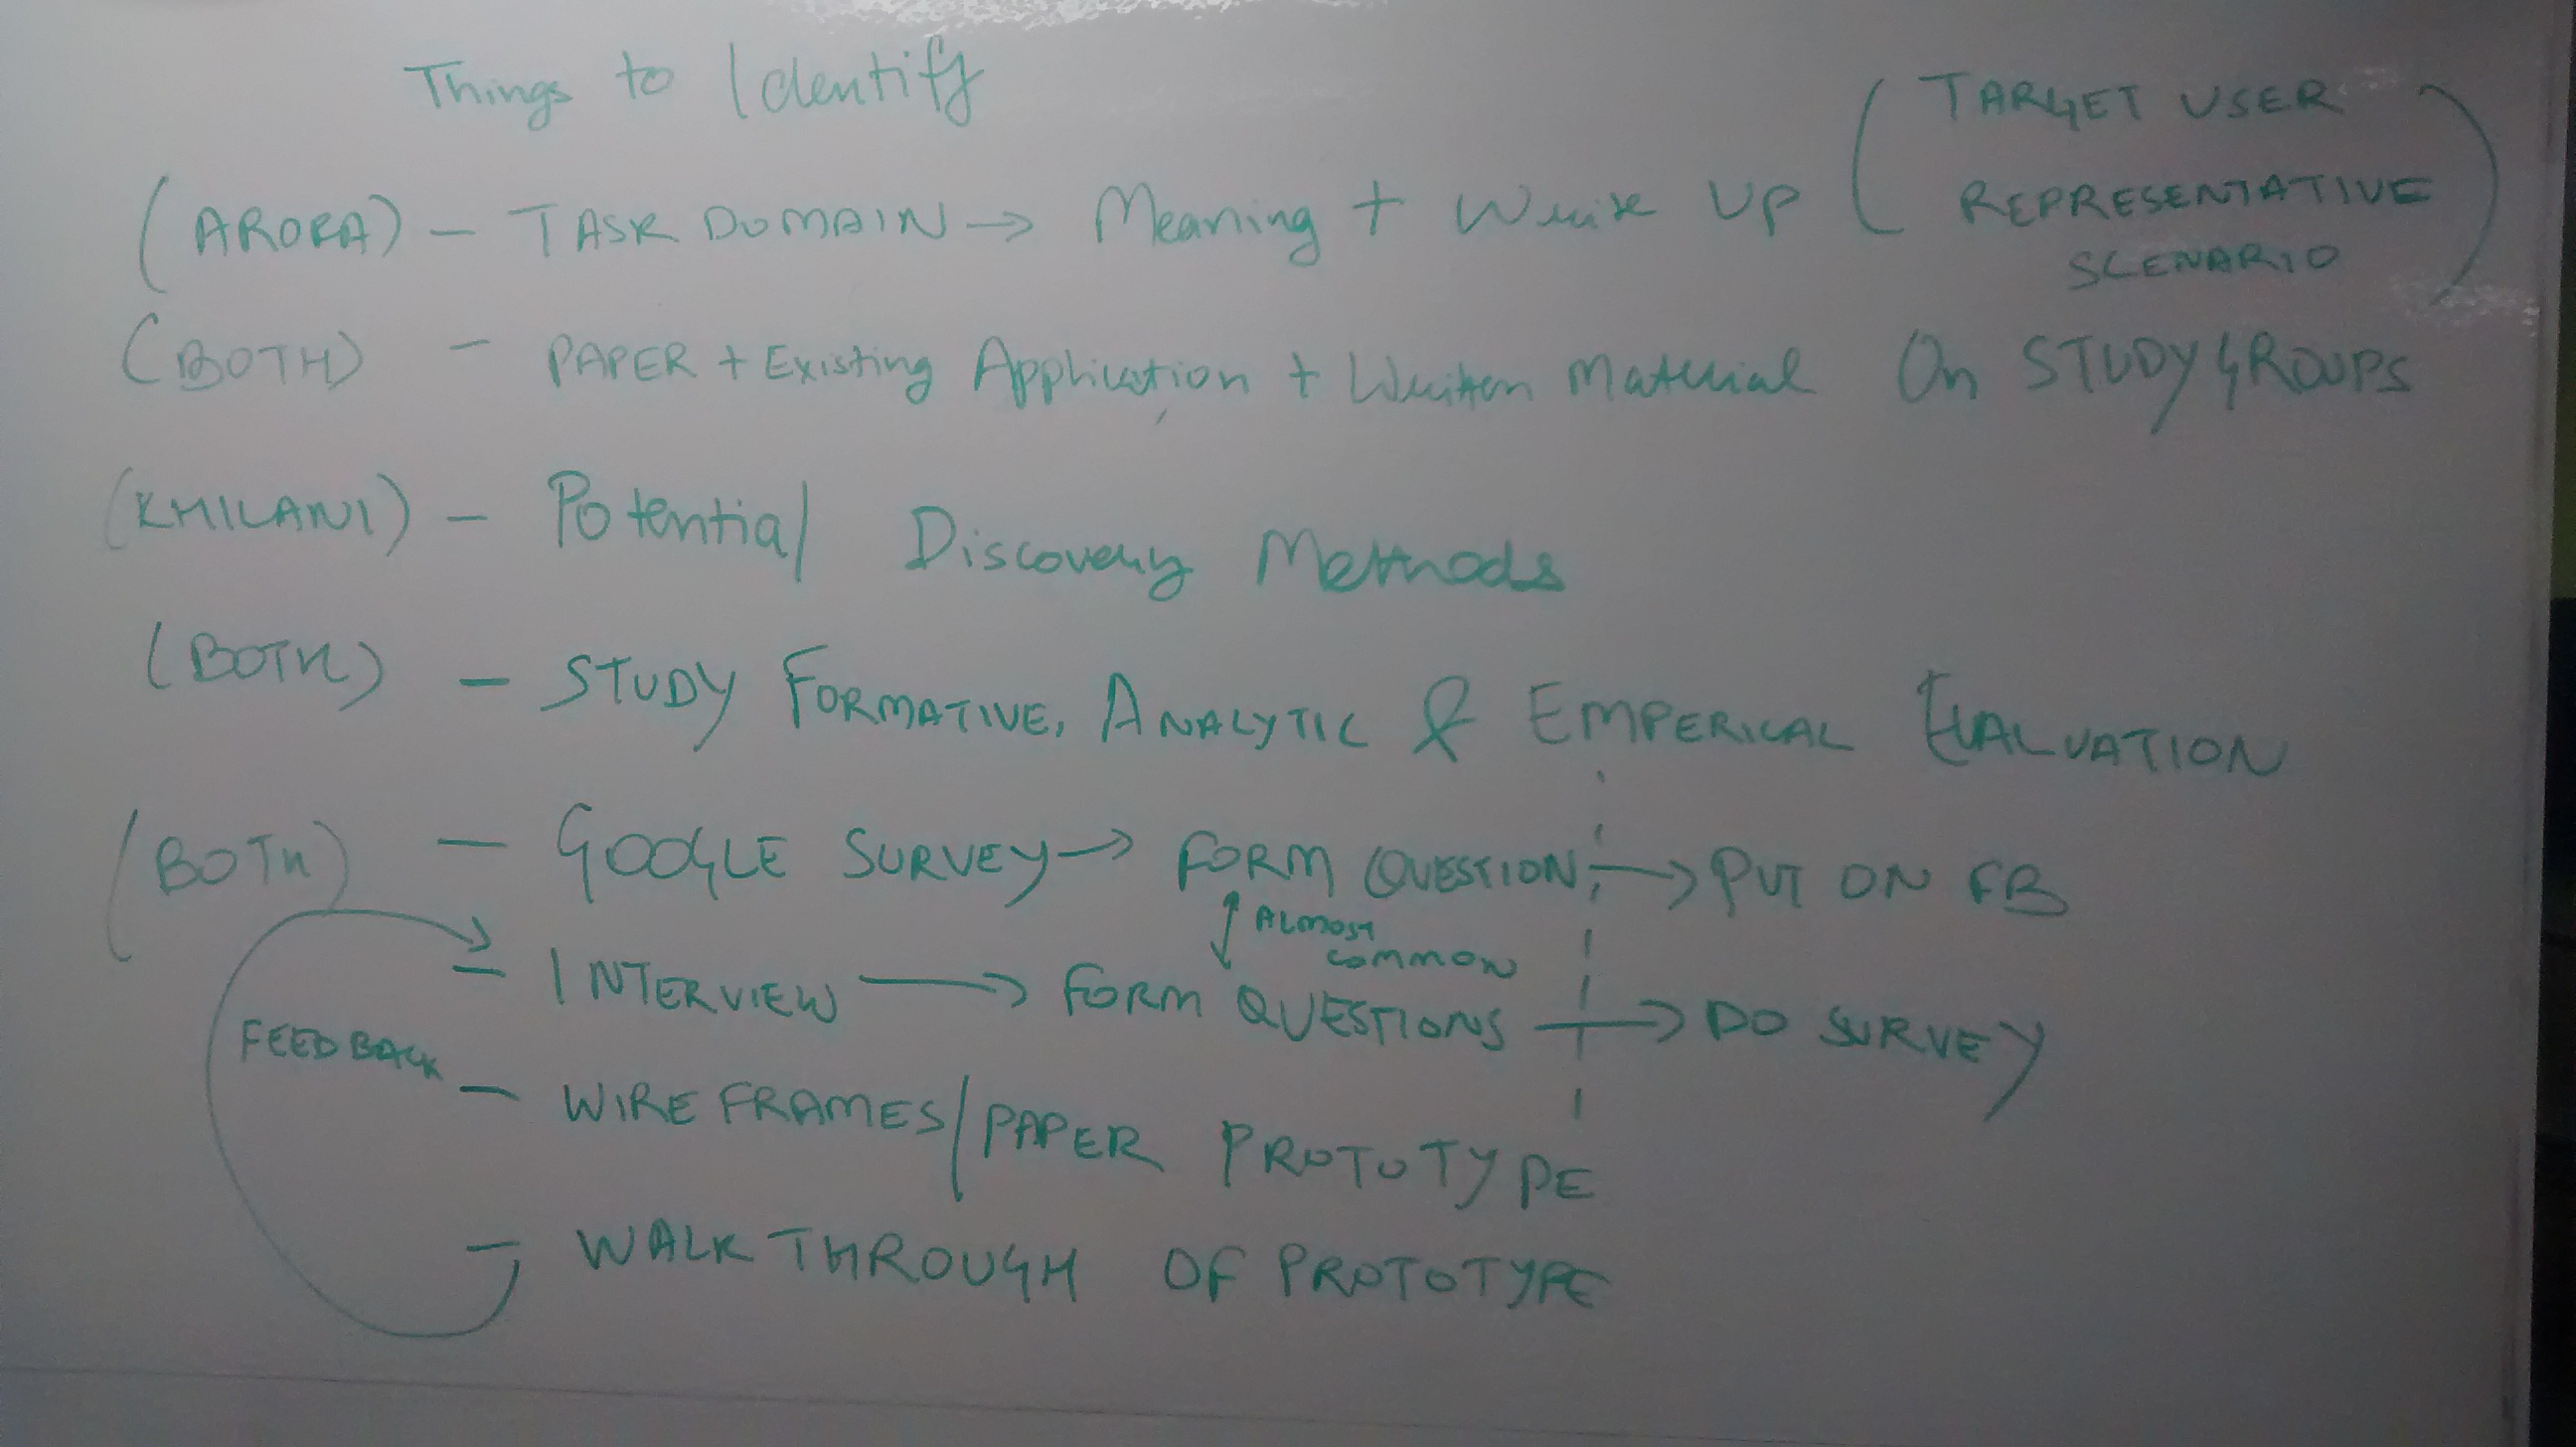 Things to Identify
(ARORA) - TASK DOMAIN → Meaning + Write UP (TARGET USER
REPRESENTATIVE
SCENARIO)
(BOTH) - PAPER + Existing Application + Written Material On STUDY GROUPS
(KHILANI) - Potential Discovery Methods
(BOTH) - STUDY FORMATIVE, ANALYTIC & EMPERICAL EVALUATION
(BOTH) - GOOGLE SURVEY → FORM QUESTION, → PUT ON FB
↕ ALMOST
COMMON
- INTERVIEW → FORM QUESTIONS → DO SURVEY
FEEDBACK
- WIREFRAMES/PAPER PROTOTYPE
- WALKTHROUGH OF PROTOTYPE